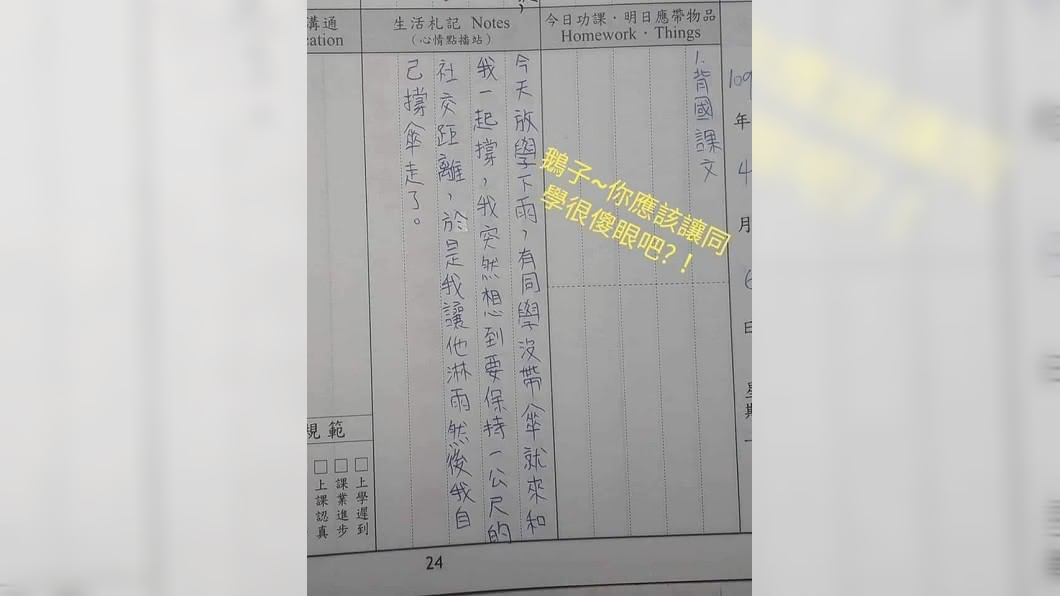 溝通
cation
生活札記 Notes
（心情點播站）
今日功課・明日應帶物品
Homework・Things
1.背國課文
109年4月6日星期一
今天放學下雨，有同學沒帶傘就來和
我一起撐，我突然想到要保持一公尺的
社交距離，於是我讓他淋雨然後我自
己撐傘走了。
鵝子~你應該讓同
學很傻眼吧?！
規範
□上學遲到
□課業進步
□上課認真
24